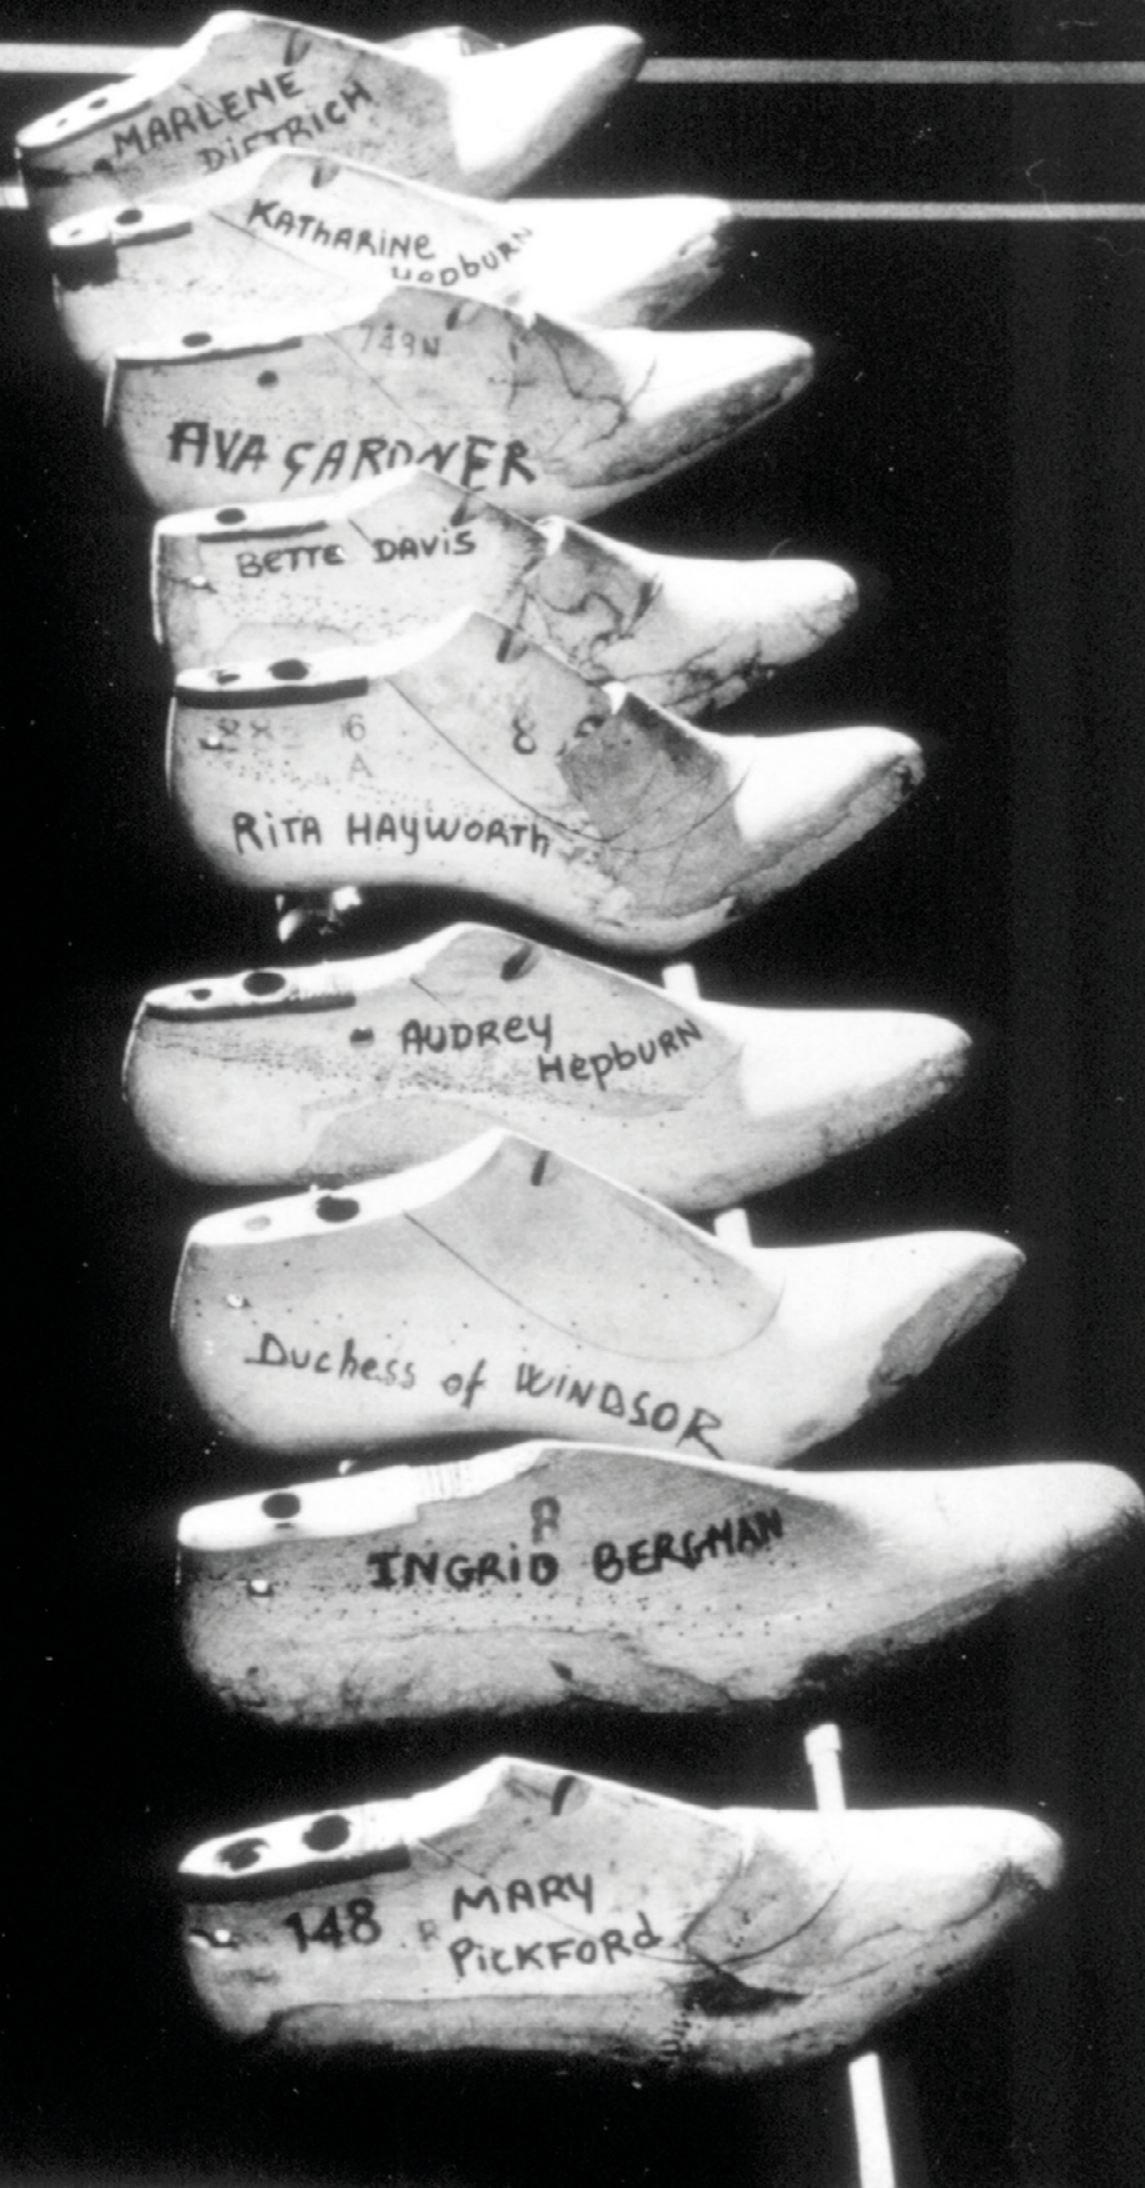 MARLENE
DIETRICH
KATHARINE
HEPBURN
749N
AVA GARDNER
BETTE DAVIS
6
8
A
RITA HAYWORTH
AUDREY
HepbURN
Duchess of WINDSOR
A
INGRID BERGMAN
148
MARY
PICKFORd